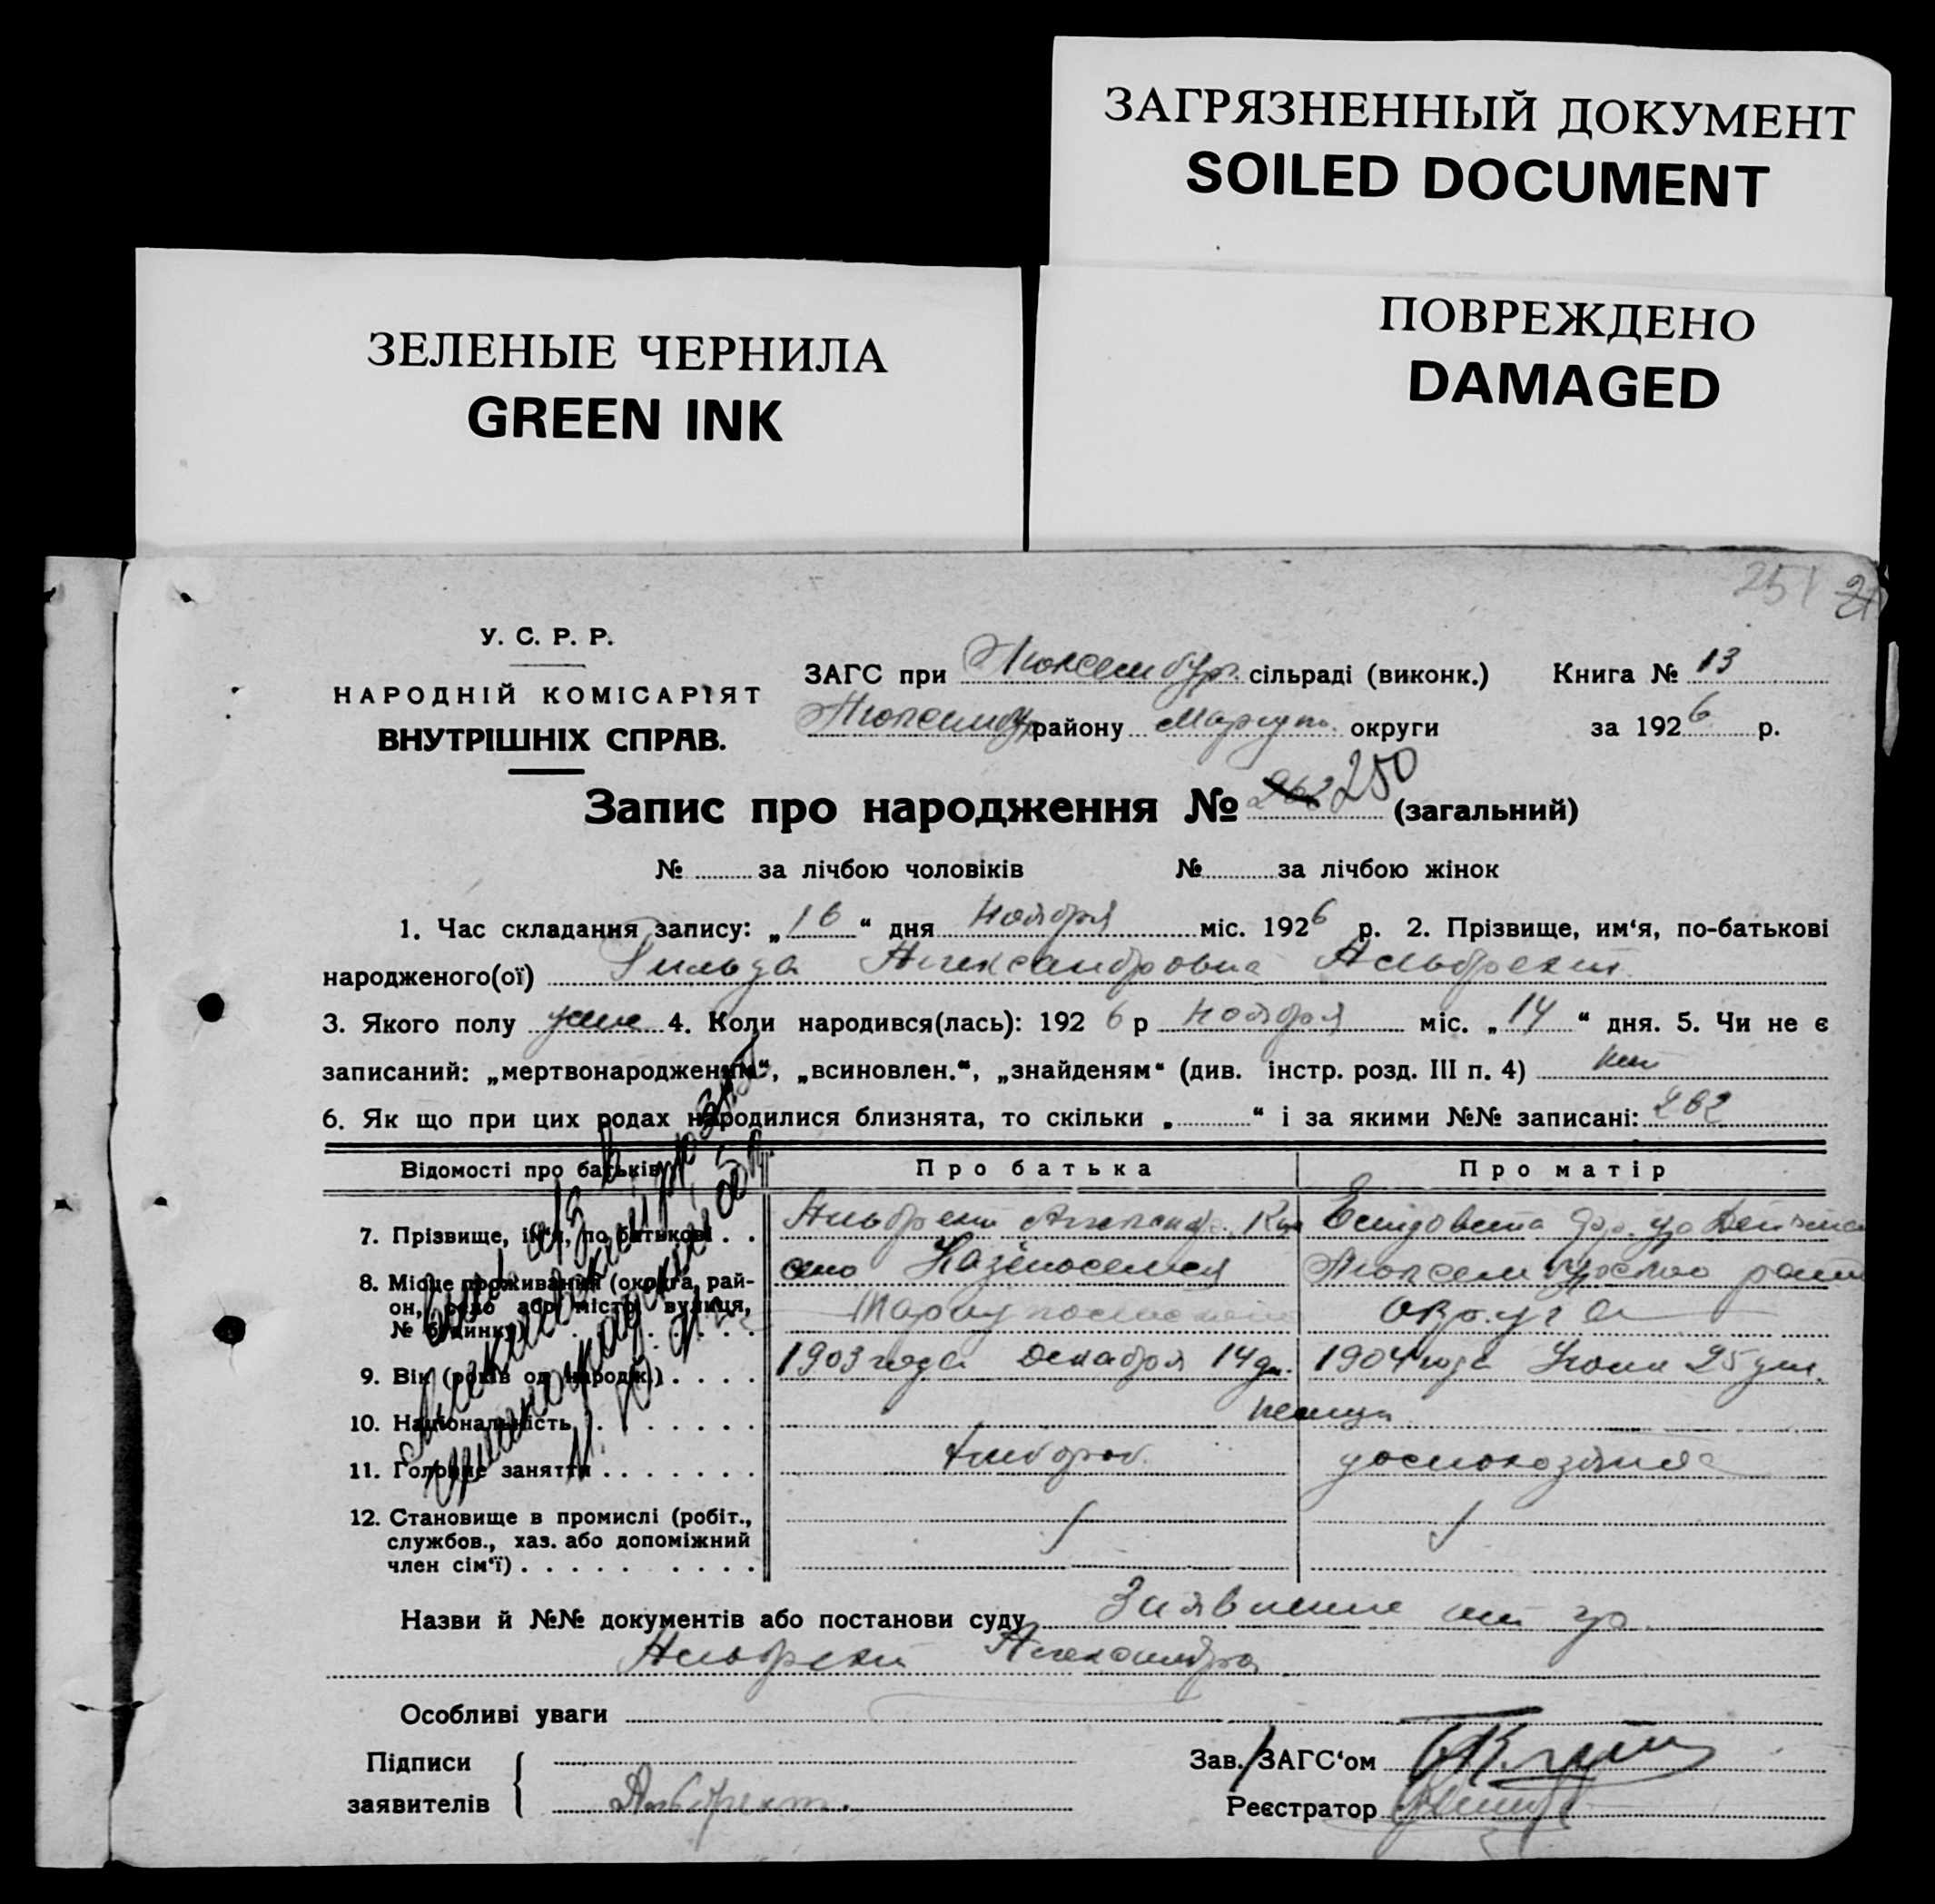 ЗАГРЯЗНЕННЫЙ ДОКУМЕНТ
SOILED DOCUMENT
ЗЕЛЕНЫЕ ЧЕРНИЛА
GREEN INK
ПОВРЕЖДЕНО
DAMAGED
251
У. С. Р. Р.
НАРОДНІЙ КОМІСАРІЯТ
ВНУТРІШНІХ СПРАВ.
ЗАГС при Люксембург. сільраді (виконк.) Книга № 13
Люксембур району Мариуп. округи за 1926 р.
Запис про народження № 262 250 (загальний)
№ за лічбою чоловіків № за лічбою жінок
1. Час складання запису: „16“ дня Ноября міс. 1926 р. 2. Прізвище, им‘я, по-батькові
народженого(ої) Гильда Александровна Альбрехт
3. Якого полу жен 4. Коли народився(лась): 1926 р Ноября міс. „14“ дня. 5. Чи не є
записаний: „мертвонародженим“, „всиновлен.“, „знайденям“ (див. інстр. розд. III п. 4) нет
6. Як що при цих родах народилися близнята, то скільки „ “ і за якими №№ записані: 262
Відомості про батьків Про батька Про матір
7. Прізвище, ім‘я, по батькові . . Альбрехт Александр
8. Місце проживання (округа, рай- село
он, село або місто, вулиця, округа
№ будинку
9. Вік (років од народж.) . . . . 1903 года Декабря 14 дн. 1904 года Июня 25 дня.
10. Національність . . . . . . . немцы
11. Головне заняття . . . . . . . хлебороб. домохозяйка
12. Становище в промислі (робіт.,
службов., хаз. або допоміжний
член сім‘ї) . . . . . . . . .
Назви й №№ документів або постанови суду Заявление от гр.
Альбрехт Александра
Особливі уваги
Підписи
заявителів Альбрехт.
Зав. ЗАГС‘ом
Реєстратор